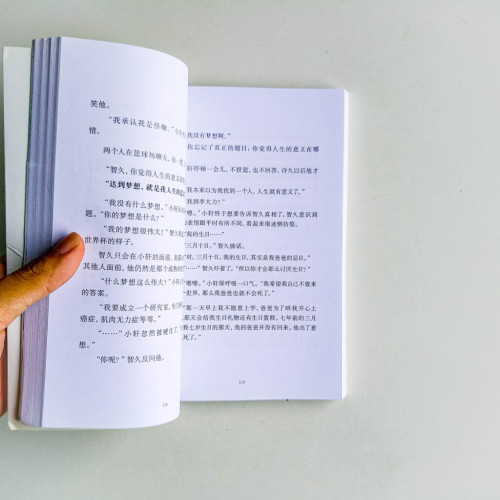 笑他。
“我承认我是怪咖。”小
情。
两个人在篮球场聊天，有一
“智久，你觉得人生的意义
“达到梦想，就是我人生的
“我没有什么梦想。”小轩
题。“你的梦想是什么？”
“我的梦想很伟大！”智久
世界杯的样子。
智久只会在小轩的面前，
其他人面前，他仍然是那个
“什么梦想这么伟大？”小轩
的答案。
“我要成立一个研究室，
癌症、肌肉无力症等等。”
“……”小轩忽然被
想。”
“你呢？”智久反问他。
我没有梦想啊。”
你忘记了真正的题目：你觉得人生的意义在哪
轩停顿一会儿，不投篮，也不回答，许久以后他才
我本来以为我找到一个人，人生就有意义了。”
我到李大力？”
嗯。”小轩终于想要告诉智久真相了。智久意识到
表情跟平时有所不同，看起来很迷惘彷徨。
我的生日……”
三月十日。”智久插话。
对，三月十日。我的生日，其实是我爸爸的忌日。”
……”智久吓着了。“所以你才会那么讨厌生日？”
嗯嗯。”小轩深呼吸一口气。“我希望我自己不曾来
世界，那么我爸爸也就不会死了。”
那一天早上我不愿意上学，爸爸为了哄我开心土
那天会给我生日礼物还有生日蛋糕。七年前的三月
我七岁生日的那天，我的爸爸并没有回来，他出了意
死了。”